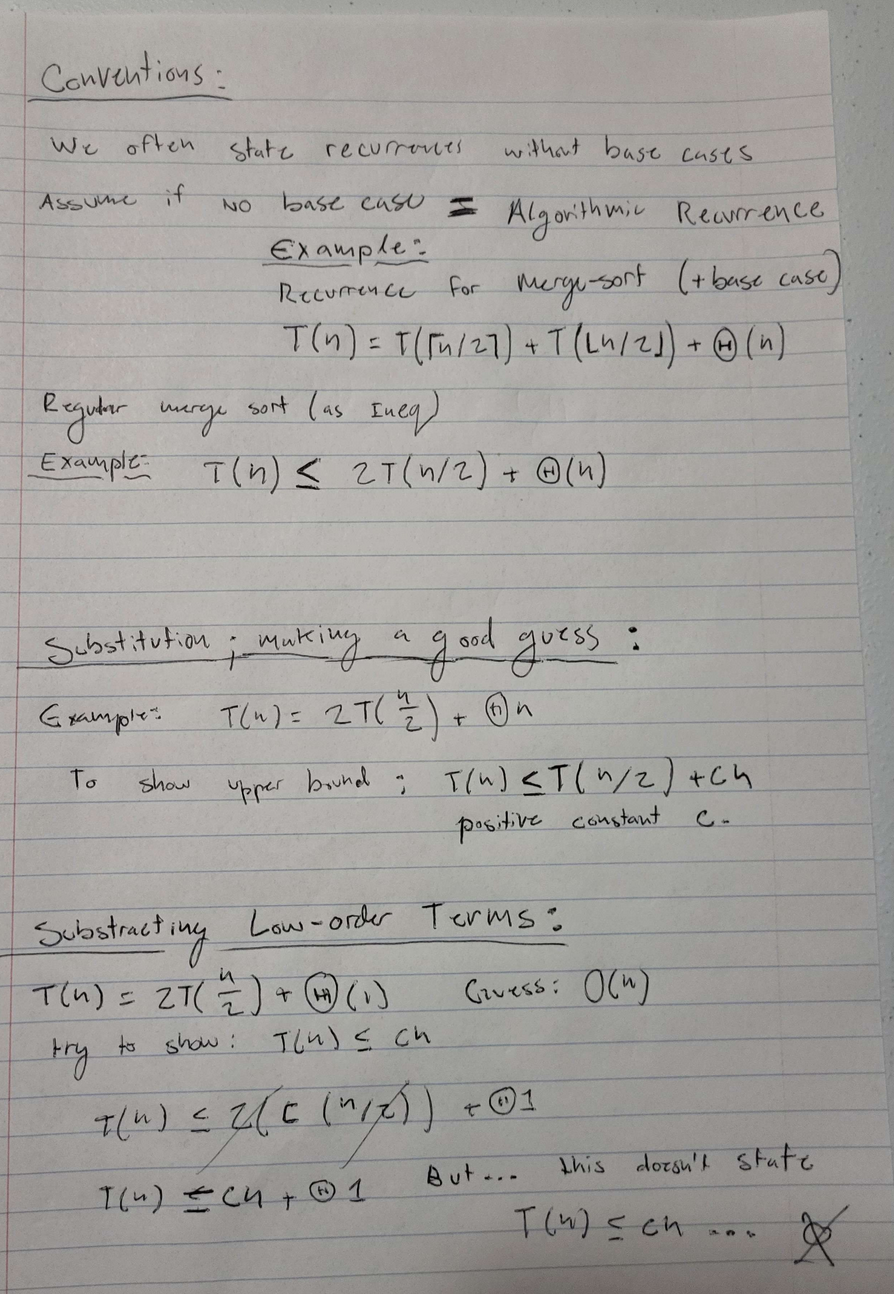 Conventions:
We often state recurrences without base cases
Assume if NO base case = Algorithmic Recurrence
Example:
Recurrence for merge-sort (+base case)
T(n) = T(⌈n/2⌉) + T(⌊n/2⌋) + Θ(n)
Regular merge sort (as Ineq)
Example: T(n) ≤ 2T(n/2) + Θ(n)
Substitution ; making a good guess :
Example: T(n) = 2T(n/2) + Θn
To show upper bound ; T(n) ≤ T(n/2) + Cn
positive constant C.
Substracting Low-order Terms:
T(n) = 2T(n/2) + Θ(1) Guess: O(n)
try to show: T(n) ≤ cn
T(n) ≤ 2(c(n/2)) + Θ1
T(n) ≤ cn + Θ1 But... this doesn't state
T(n) ≤ cn ...